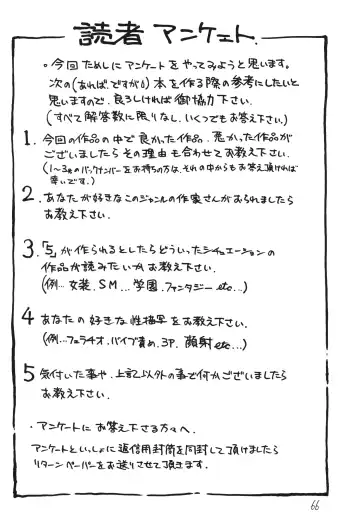 読者アンケート.
。今回ためしにアンケートをやってみようと思います。
次の(あれば、ですが💧)本を作る際の参考にしたいと
思いますので、良ろしければ御協力下さい。
(すべて解答数に限りなし、いくつでもお答え下さい。)
1. 今回の作品の中で良かった作品、悪かった作品が
ございましたらその理由も合わせてお教え下さい.
(1〜3号のバックナンバーをお持ちの方は、それの中からもお答え頂ければ
幸いです。)
2. あなたが好きなこのジャンルの作家さんがおられましたら
お教え下さい.
3. 「5」が作られるとしたらどういったシチュエーションの
作品が読みたいかお教え下さい.
(例…女装.SM…学園.ファンタジーetc…)
4 あなたの好きな性描写をお教え下さい.
(例…フェラチオ.バイブ責め.3P.顔射etc…)
5 気付いた事や、上記以外の事で何かございましたら
お教え下さい.
・アンケートにお答え下さる方々へ.
アンケートといっしょに返信用封筒を同封して頂けましたら
リターンペーパーをお送りさせて頂きます.
66